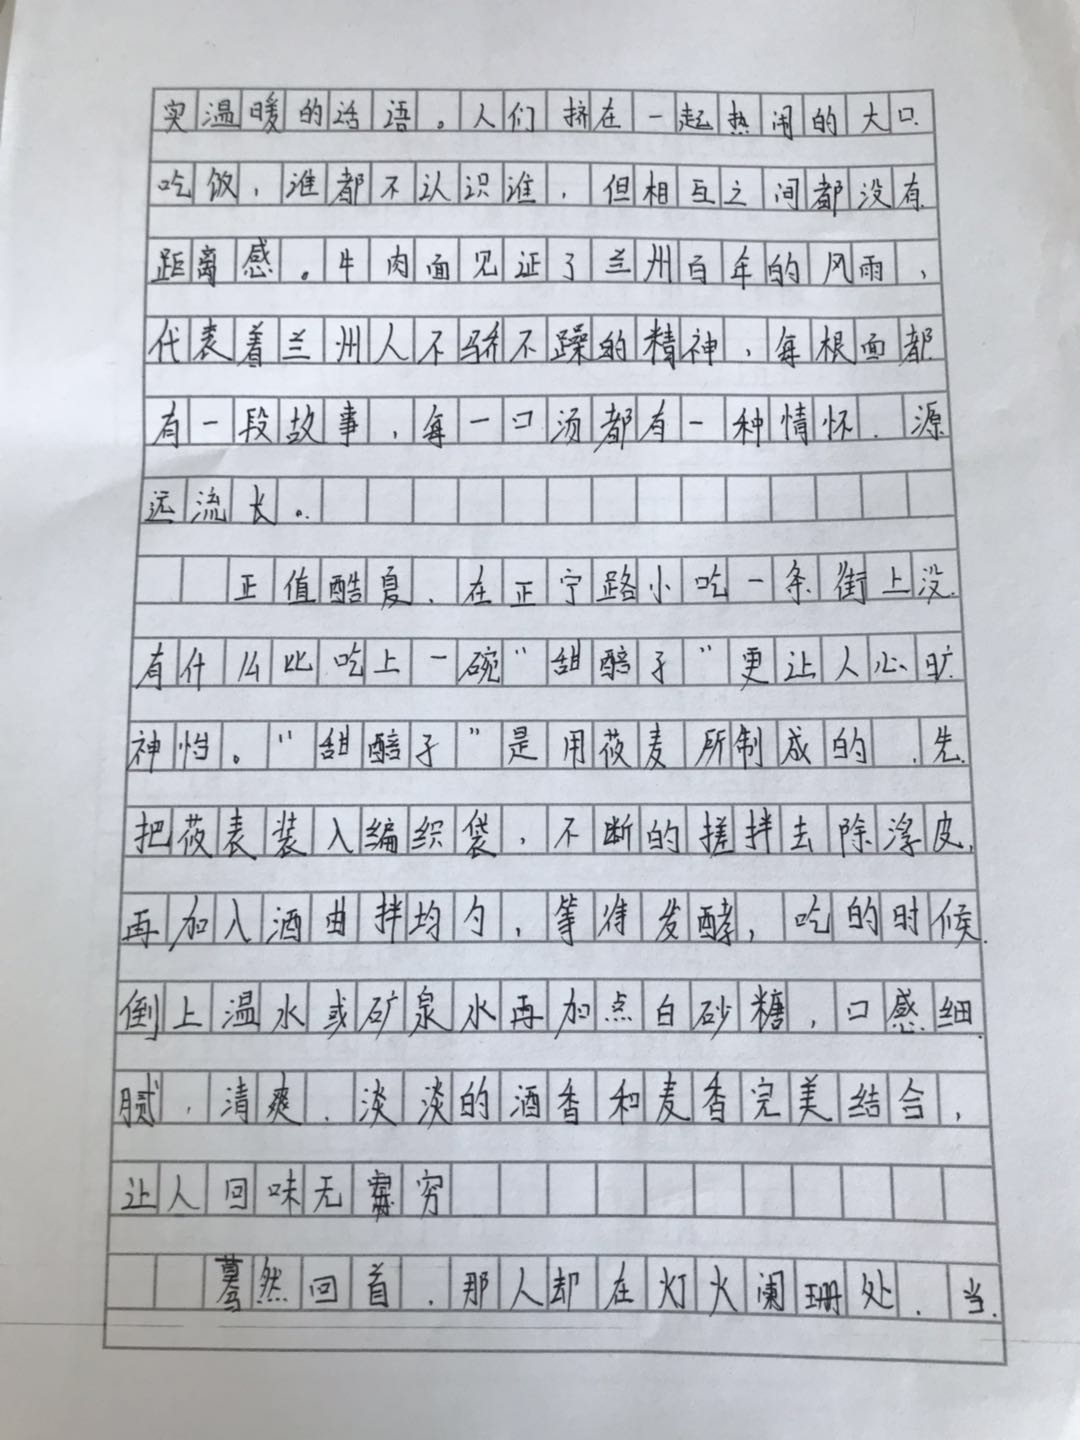 实温暖的话语。人们挤在一起热闹的大口
吃饭,谁都不认识谁,但相互之间都没有
距离感。牛肉面见证了兰州百年的风雨,
代表着兰州人不骄不躁的精神,每根面都
有一段故事,每一口汤都有一种情怀.源
远流长。
正值酷夏、在正宁路小吃一条街上没
有什么比吃上一碗“甜醅子”更让人心旷
神怡。“甜醅子”是用莜麦所制成的,先
把莜表装入编织袋,不断的搓拌去除浮皮,
再加入酒曲拌均匀,等待发酵,吃的时候
倒上温水或矿泉水再加点白砂糖,口感细
腻,清爽、淡淡的酒香和麦香完美结合,
让人回味无穷
蓦然回首,那人却在灯火阑珊处,当